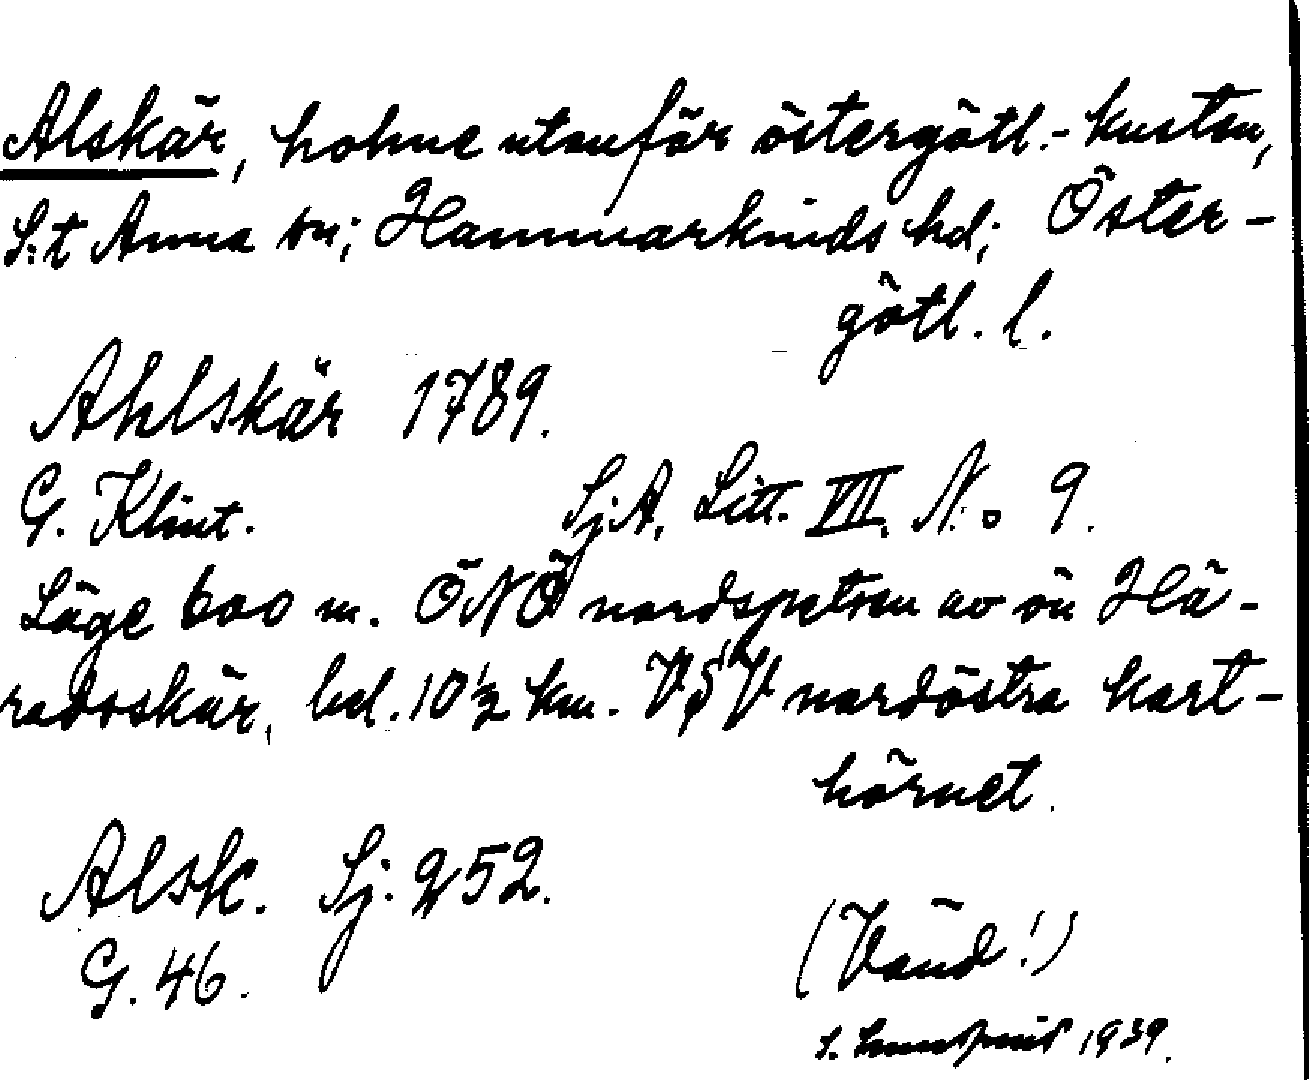 Alskär, holme utanför östergötl.-kusten,
S:t Anna sn; Hammarkinds hd; Öster-
götl. l.
Ahlskär 1789.
G. Klint. Sj.A, Litt. VII. No 9.
Läge 600 m. ÖNÖ nordspetsen av ön Hä-
radsskär, bel. 10½ km. VSV nordöstra kart-
hörnet.
Alsk. Sj. 252.
G. 46.
(Vänd!)
1939.